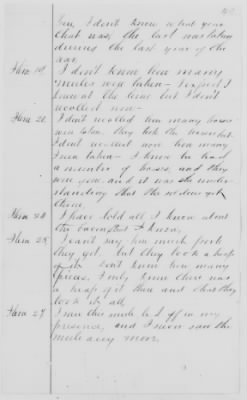 Geo, I don't know what year
that was, the last was taken
during the last year of the
war
Item 19. I don't know how many
mules were taken - I expect I
knew at the time but I don't
recollect now -
Item 20. I don't recollect how many horses
were taken. they took the horses but
I don't recollect now how many
I was taken - I know he had
a number of horses, and they
were gone and it was the under-
standing that the soldiers got
them.
Item I have told all I know about
the I know,
Item 25. I can't say how much pork
they got. but they took a heap
of it don't know how many
pieces, I only know there was
a heap of it there and that they
took it all
Item 27. I saw this mule led off in my
presence, and I never saw the
mule any more.